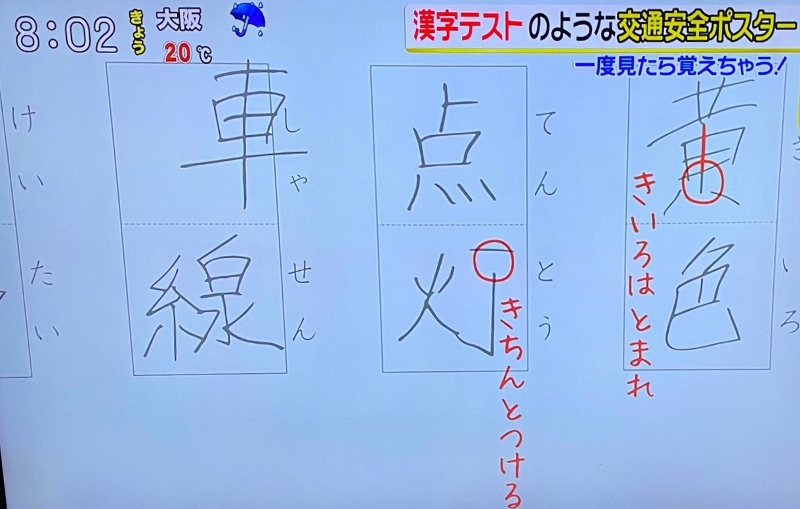 8:02
きょう
大阪
20℃
漢字テストのような交通安全ポスター
一度見たら覚えちゃう!
黄色
きいろ
きいろはとまれ
点灯
てんとう
きちんとつける
車線
しゃせん
けいたい